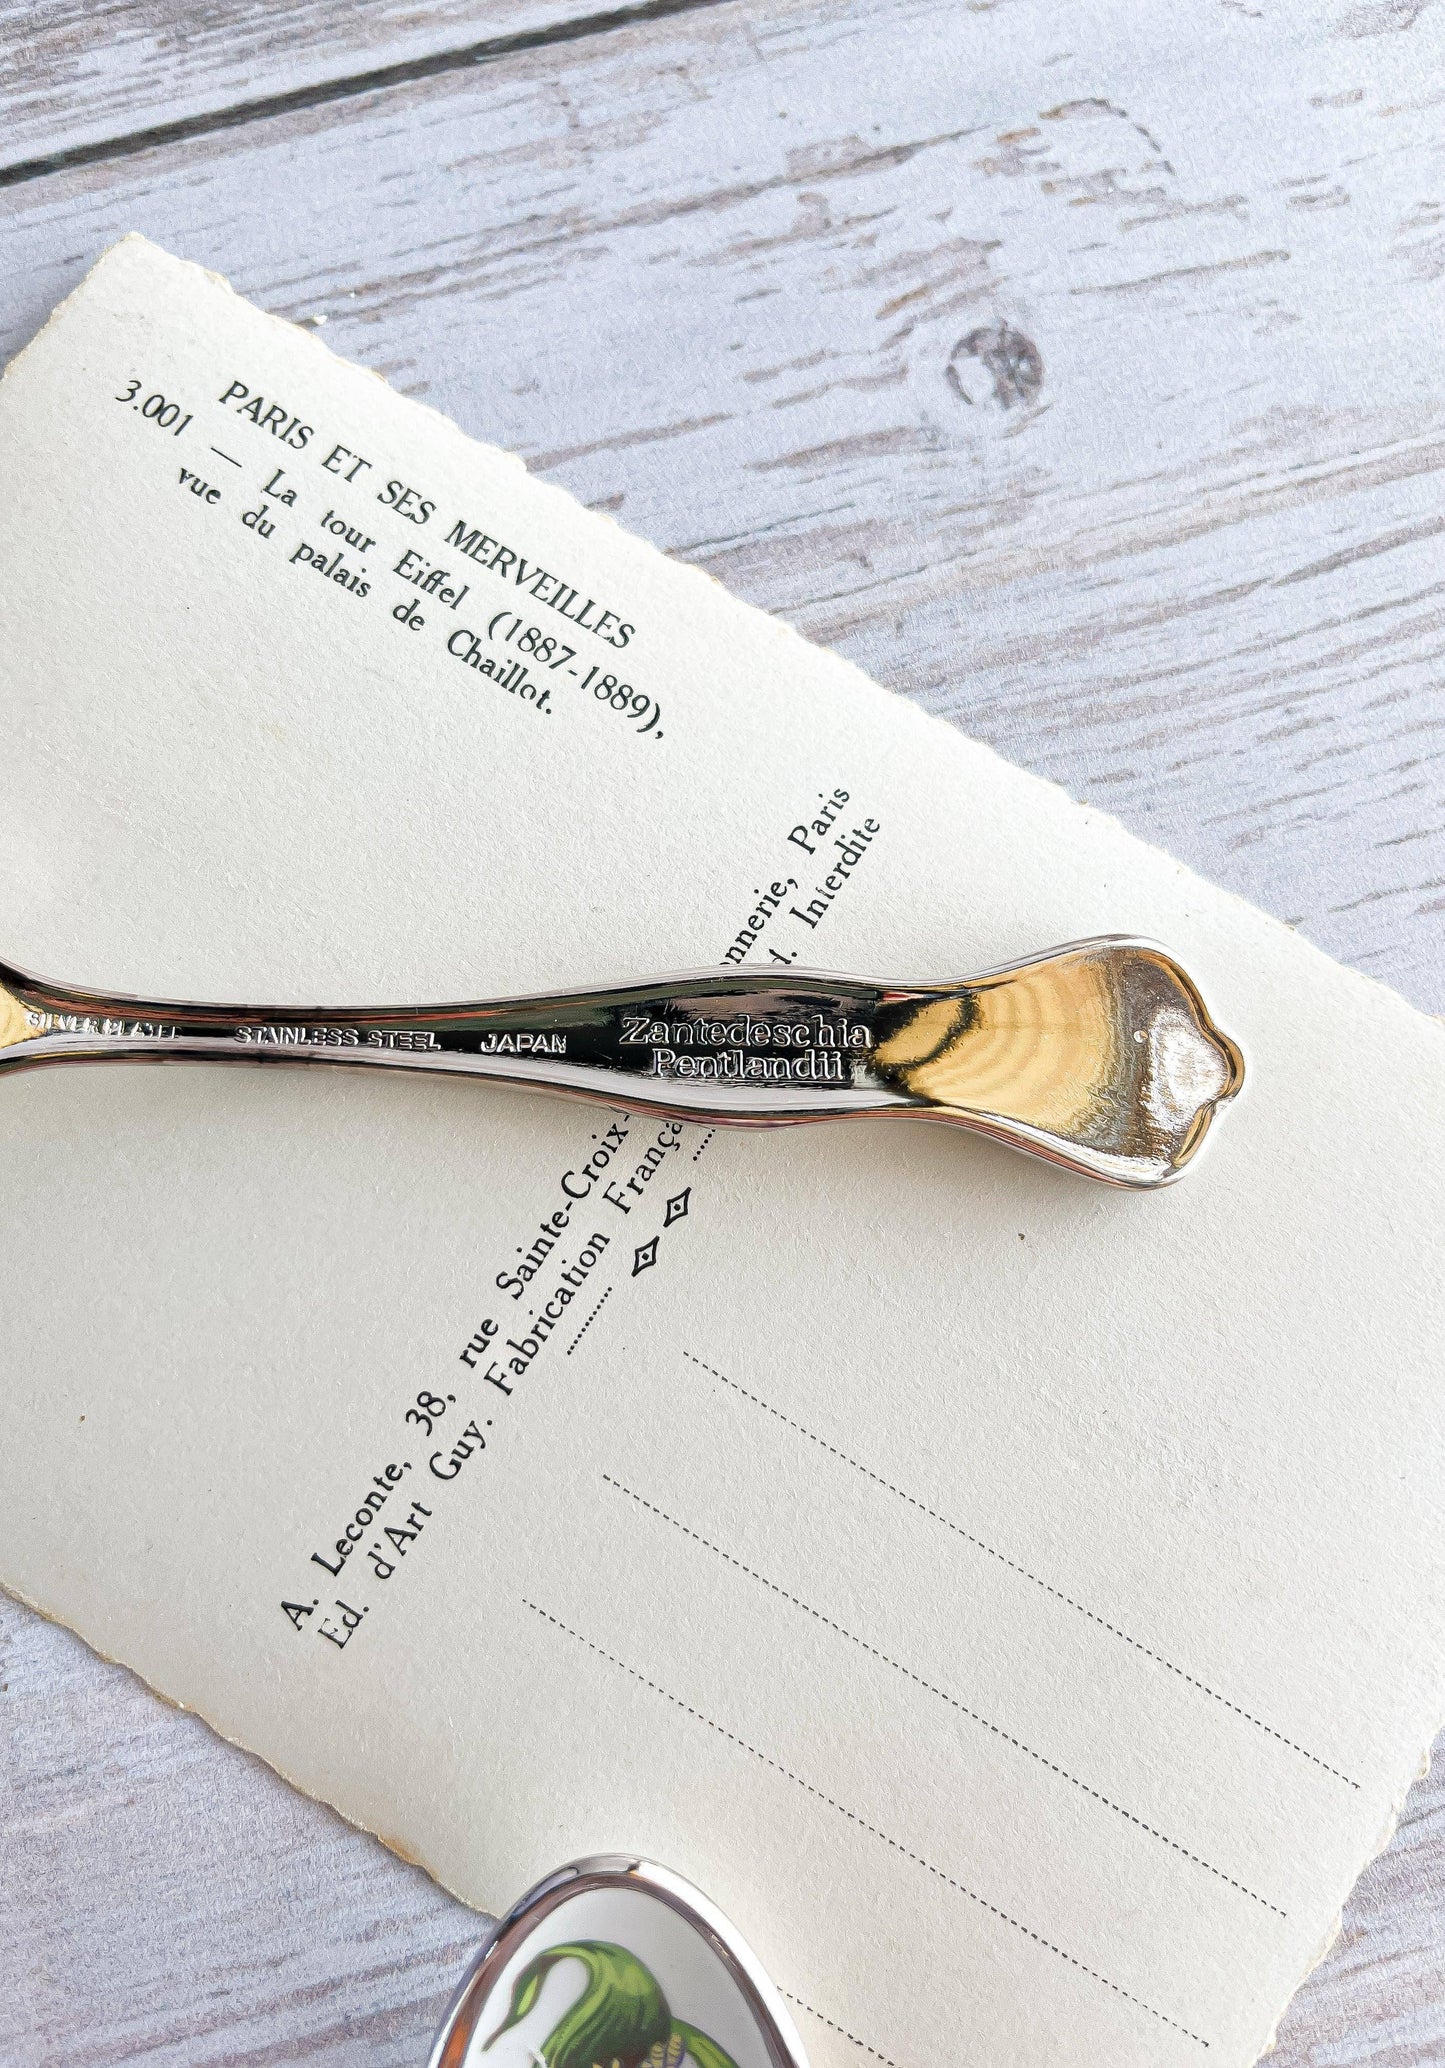 PARIS ET SES MERVEILLES
3.001 — La tour Eiffel (1887-1889),
vue du palais de Chaillot.
A. Leconte, 38, rue Sainte-Croix- onnerie, Paris
Ed. d'Art Guy. Fabrication França d. Interdite
SILVER PLATED STAINLESS STEEL JAPAN
Zantedeschia
Pentlandii